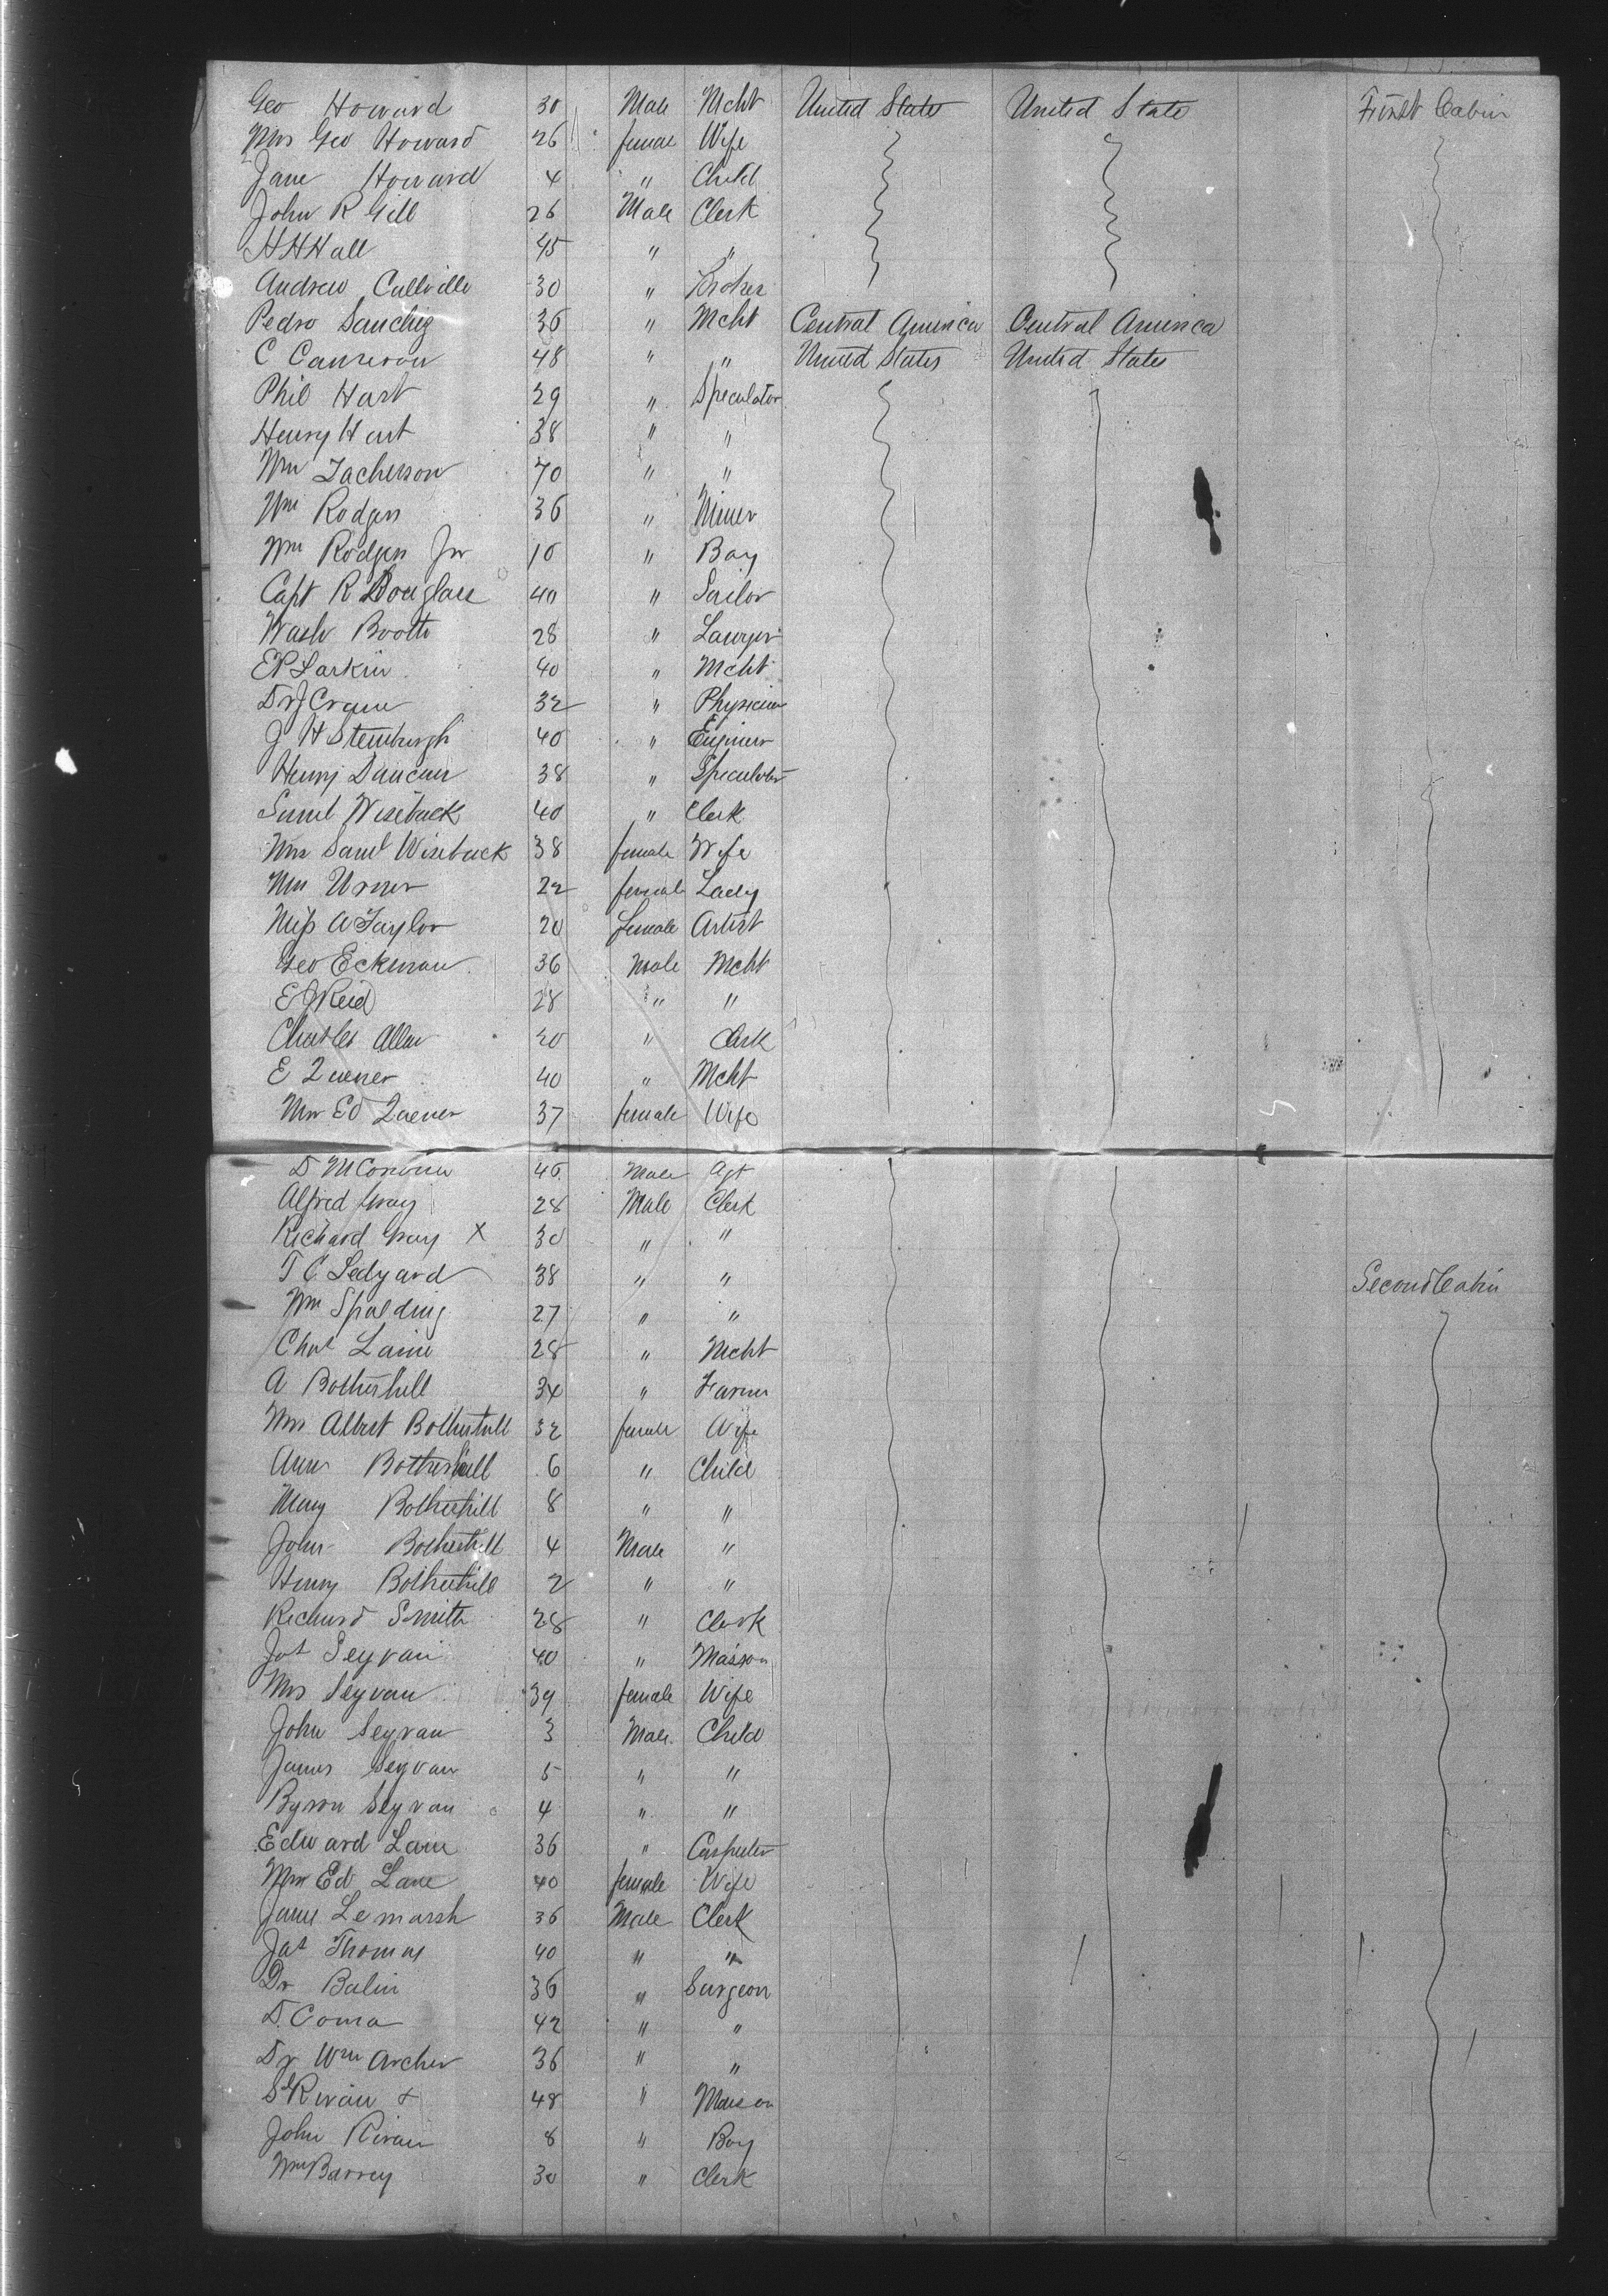 Geo Howard 30 Male Mcht United State United State First Cabin
Mrs Geo Howard 26 female Wife
Jane Howard 4 " Child
John R Gill 26 Male Clerk
H H Hall 45 " "
Andrew 30 " Broker
Pedro Sanchez 36 " Mcht Central America Central America
C Cameron 48 " " United States United States
Phil Hart 29 " Speculator
Henry Hart 38 " "
Wm 70 " "
Wm Rodgers 36 " Miner
Wm Rodgers Jnr 10 " Boy
Capt R Douglass 40 " Sailor
Wash Booth 28 " Lawyer
E P Larkin 40 " Mcht
Dr J Crane 32 " Physician
J H Sternburgh 40 " Engineer
Henry Duncan 38 " Speculator
Saml Wiseback 40 " Clerk
Mrs Saml Wiseback 38 female Wife
Mrs Urner 22 female Lady
Miss A Taylor 20 female Artist
Geo Eckman 36 Male Mcht
E J Reid 28 " "
Charles Allen 20 " Clerk
E Zuener 40 " Mcht
Mrs Ed Zuener 37 female Wife
D 46 Male Agt
Alfred Gray 28 Male Clerk
Richard Gray X 30 " "
T C Ledyard 38 " " Second Cabin
Wm Spalding 27 " "
Chas Laine 28 " Mcht
A Botherhill 34 " Farmer
Mrs Albert Botherhill 32 female Wife
Ann Botherhill 6 " Child
Mary Botherhill 8 " "
John Botherhill 4 Male "
Henry Botherhill 2 " "
Richard Smith 28 " Clerk
Jas Seyvan 40 " Masson
Mrs Seyvan 39 female Wife
John Seyvan 3 Male Child
James Seyvan 5 " "
Byron Seyvan 4 " "
Edward Lane 36 " Carpenter
Mrs Ed Lane 40 female Wife
James Lemarsh 36 Male Clerk
Jas Thomas 40 " "
Dr Balin 36 " Surgeon
D. Coma 42 " "
Dr Wm Archer 36 " "
S Rivan 48 " Mason
John Rivan 8 " Boy
Wm Barrey 30 " Clerk